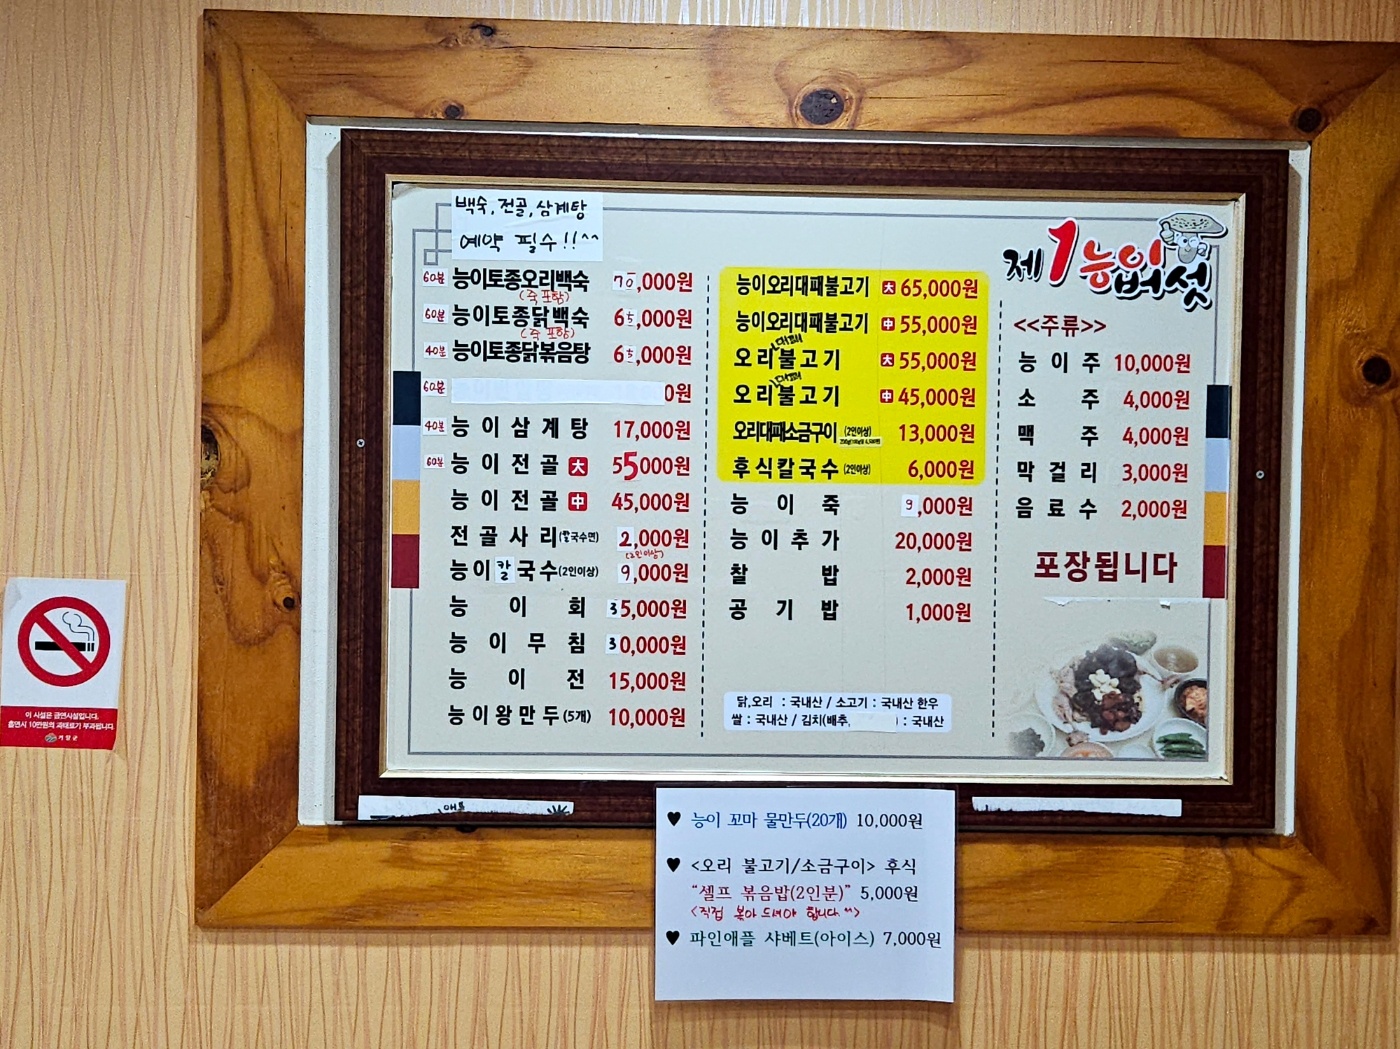 백숙, 전골, 삼계탕
예약 필수!!^^
60분 능이토종오리백숙 70,000원
(죽 포함)
60분 능이토종닭백숙 65,000원
(죽 포함)
40분 능이토종닭볶음탕 65,000원
60분 0원
40분 능이삼계탕 17,000원
60분 능이전골 大 55,000원
능이전골 中 45,000원
전골사리(칼국수면) 2,000원
(2인이상)
능이칼국수(2인이상) 9,000원
능이회 35,000원
능이무침 30,000원
능이전 15,000원
능이왕만두(5개) 10,000원
능이오리대패불고기 大 65,000원
능이오리대패불고기 中 55,000원
대패
오리불고기 大 55,000원
대패
오리불고기 中 45,000원
오리대패소금구이 (2인이상) 13,000원
후식칼국수(2인이상) 6,000원
능이죽 9,000원
능이추가 20,000원
찰밥 2,000원
공기밥 1,000원
닭,오리 : 국내산 / 소고기 : 국내산 한우
쌀 : 국내산 / 김치(배추, ) : 국내산
제1능이버섯
<<주류>>
능이주 10,000원
소주 4,000원
맥주 4,000원
막걸리 3,000원
음료수 2,000원
포장됩니다
♥ 능이 꼬마 물만두(20개) 10,000원
♥ <오리 불고기/소금구이> 후식
"셀프 볶음밥(2인분)" 5,000원
<직접 볶아 드셔야 합니다^^>
♥ 파인애플 샤베트(아이스) 7,000원
이 시설은 금연시설입니다.
흡연시 10만원의 과태료가 부과됩니다.